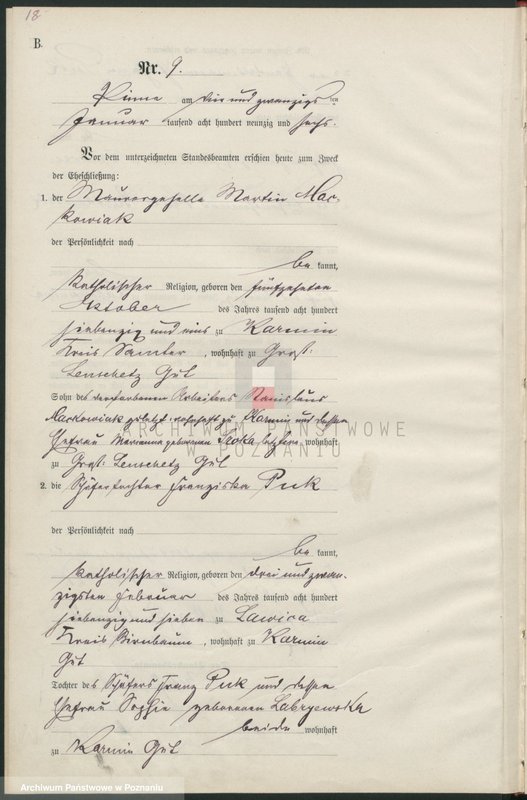 18
B.
Nr. 9.
Pinne am vier und zwanzigsten
Januar tausend acht hundert neunzig und sechs.
Vor dem unterzeichneten Standesbeamten erschien heute zum Zweck
der Eheschließung:
1. der Maurergeselle Martin Mac-
kowiak
der Persönlichkeit nach
be kannt,
katholischer Religion, geboren den fünfzehnten
Oktober des Jahres tausend acht hundert
siebenzig und eins zu Karmin
Kreis Samter, wohnhaft zu Groß-
Lenschetz Gut
Sohn des verstorbenen Arbeiters Stanislaus
Mackowiak zuletzt wohnhaft zu Karmin und dessen
Ehefrau Marianna geborenen letztere wohnhaft
zu Groß-Lenschetz Gut
2. die Schäfertochter Franziska Puk
der Persönlichkeit nach
be kannt,
katholischer Religion, geboren den drei und zwan-
zigsten Februar des Jahres tausend acht hundert
siebenzig und sieben zu Lawica
Kreis Birnbaum, wohnhaft zu Karmin
Gut
Tochter des Schäfers Franz Puk und dessen
Ehefrau Sophie geborenen
beide wohnhaft
zu Karmin Gut
ARCHIWUM PAŃSTWOWE
W POZNANIU
Archiwum Państwowe w Poznaniu